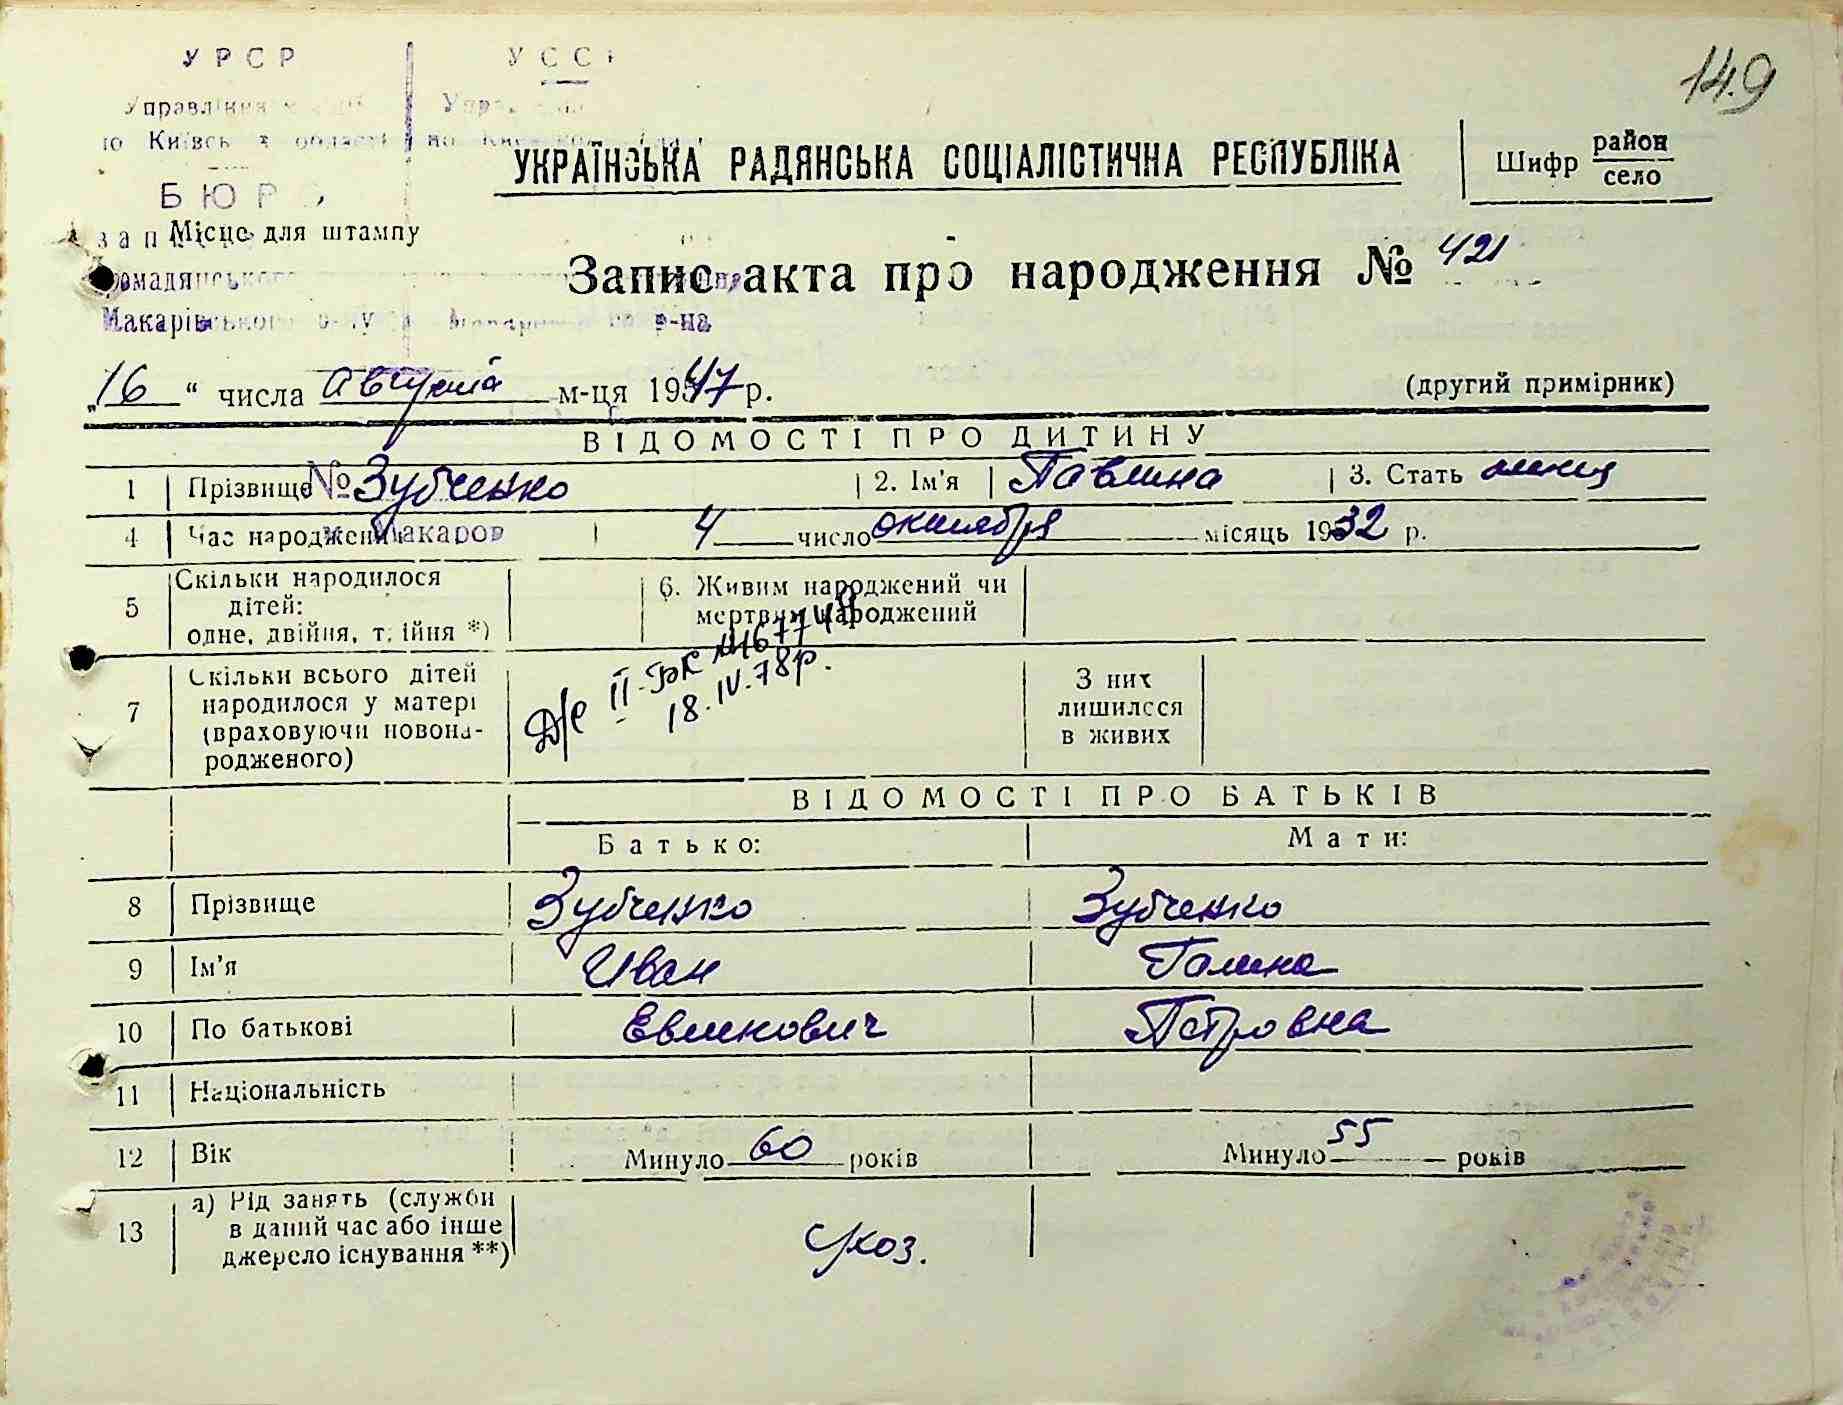 149
УРСР УСС
Управління
Київськ області по
БЮР
УКРАЇНСЬКА РАДЯНСЬКА СОЦІАЛІСТИЧНА РЕСПУБЛІКА
Шифр район
село
Місце для штампу
Запис акта про народження № 421
Макарівського р-на
„16“ числа августа м-ця 1947 р. (другий примірник)
ВІДОМОСТІ ПРО ДИТИНУ
1 Прізвище № Зубченко 2. Ім'я Павлина 3. Стать женщ
4 Час народження м. Макаров 4 число октября місяць 1932 р.
5 Скільки народилося дітей: одне, двійня, трійня *) 6. Живим народжений чи мертвим народжений
Д/с II-БК
18.IV.78р.
7 Скільки всього дітей народилося у матері (враховуючи новонародженого) З них лишилося в живих
ВІДОМОСТІ ПРО БАТЬКІВ
Батько: Мати:
8 Прізвище Зубченко Зубченко
9 Ім'я Иван Галина
10 По батькові Петровна
11 Національність
12 Вік Минуло 60 років Минуло 55 років
13 а) Рід занять (служби в даний час або інше джерело існування **)